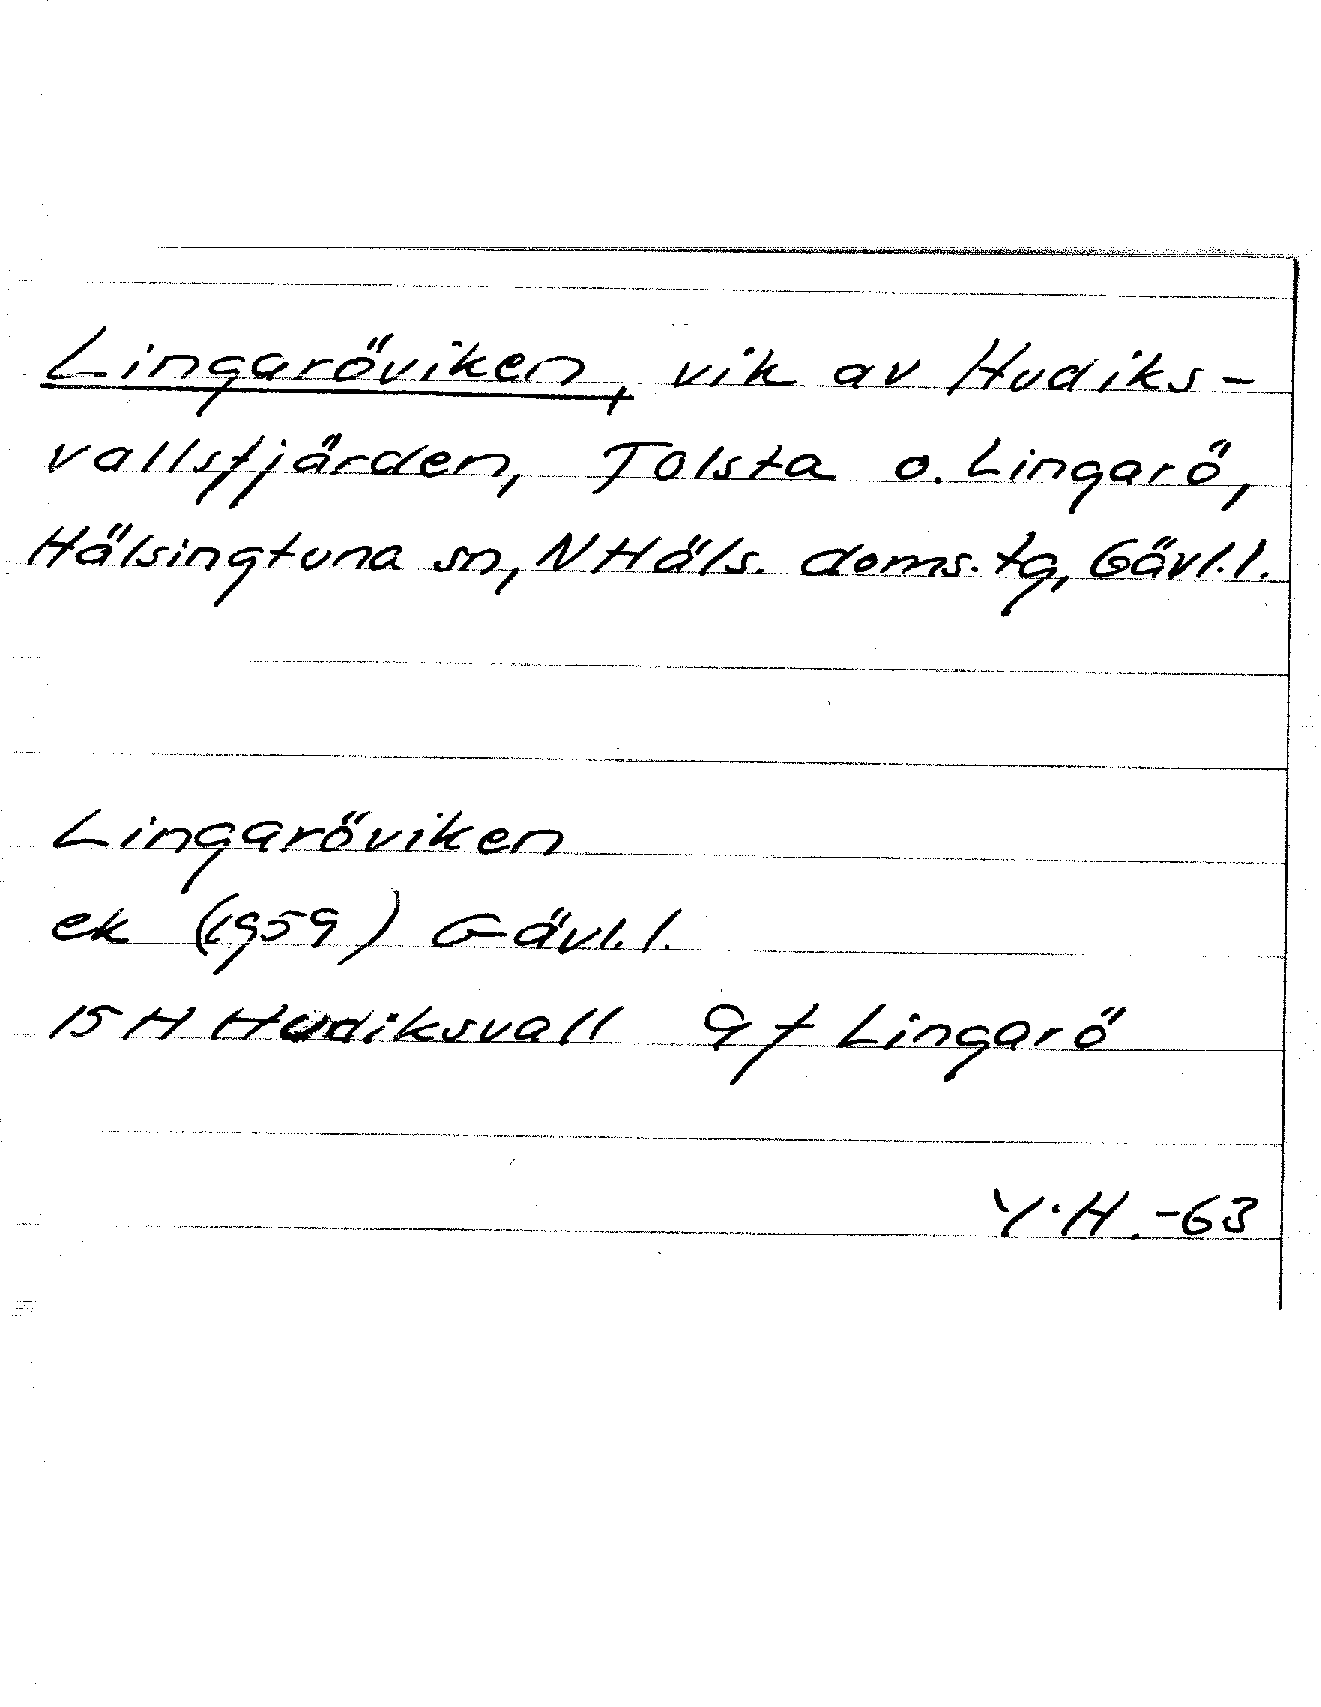 Lingaröviken, vik av Hudiks-
vallsfjärden, Tolsta o. Lingarö,
Hälsingtuna sn, N Häls. doms. tg, Gävl. l.
Lingaröviken
ek (1959) Gävl. l.
15 H Hudiksvall 9 f Lingarö
Y.H. -63